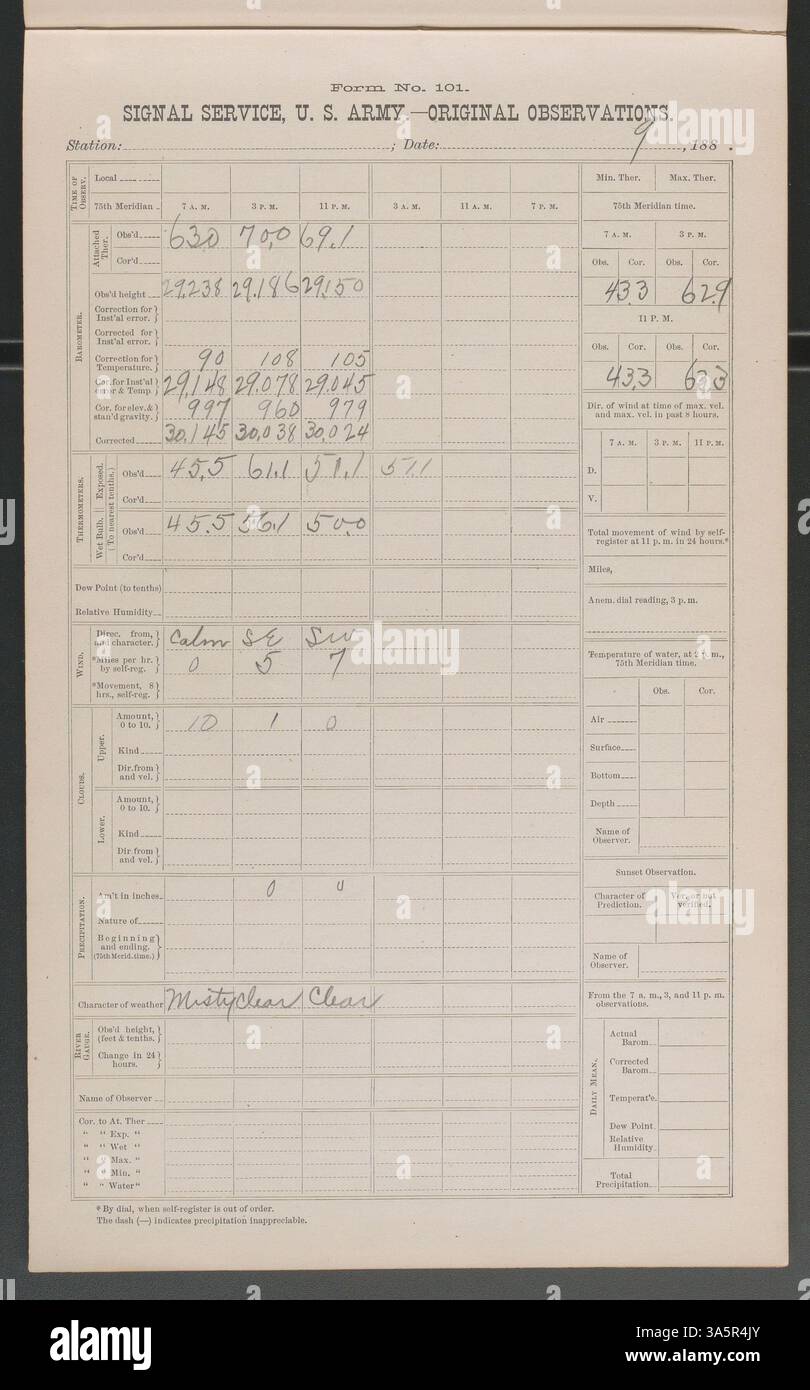 Form No. 101.
SIGNAL SERVICE, U. S. ARMY.—ORIGINAL OBSERVATIONS.
Station: ; Date: 9 , 188 .
TIME OF OBSERV.
Local
75th Meridian 7 A. M. 3 P. M. 11 P. M. 3 A. M. 11 A. M. 7 P. M.
BAROMETER.
Attached Ther.
Obs'd 63.0 70.0 69.1
Cor'd
Obs'd height 29.238 29.186 29.150
Correction for Inst'al error.
Corrected for Inst'al error.
Correction for Temperature. 90 108 105
Cor. for Inst'al error & Temp. 29.148 29.078 29.045
Cor. for elev. & stan'd gravity. 997 960 979
Corrected 30.145 30.038 30.024
THERMOMETERS.
(To nearest tenths.)
Exposed.
Obs'd 45.5 61.1 51.1 51.1
Cor'd
Wet Bulb.
Obs'd 45.5 56.1 50.0
Cor'd
Dew Point (to tenths)
Relative Humidity
WIND.
Direc. from, and character. Calm SE SW
*Miles per hr. by self-reg. 0 5 7
*Movement, 8 hrs., self-reg.
CLOUDS.
Upper.
Amount, 0 to 10. 10 1 0
Kind
Dir. from and vel.
Lower.
Amount, 0 to 10.
Kind
Dir. from and vel.
PRECIPITATION.
Am't in inches 0 0
Nature of
Beginning and ending. (75th Merid. time.)
Character of weather Misty Clear Clear
RIVER GAUGE.
Obs'd height, (feet & tenths.
Change in 24 hours.
Name of Observer
Cor. to At. Ther
" " Exp. "
" " Wet "
" " Max. "
" " Min. "
" " Water "
* By dial, when self-register is out of order.
The dash (—) indicates precipitation inappreciable.
Min. Ther. Max. Ther.
75th Meridian time.
7 A. M. 3 P. M.
Obs. Cor. Obs. Cor.
43.3 62.9
11 P. M.
Obs. Cor. Obs. Cor.
43.3
Dir. of wind at time of max. vel. and max. vel. in past 8 hours.
7 A. M. 3 P. M. 11 P. M.
D.
V.
Total movement of wind by self-register at 11 p. m. in 24 hours.*
Miles,
Anem. dial reading, 3 p. m.
Temperature of water, at p. m., 75th Meridian time.
Obs. Cor.
Air
Surface
Bottom
Depth
Name of Observer.
Sunset Observation.
Character of Prediction. Ver. or not verified.
Name of Observer.
From the 7 a. m., 3, and 11 p. m. observations.
DAILY MEAN.
Actual Barom
Corrected Barom
Temperat'e
Dew Point.
Relative Humidity
Total Precipitation
alamy
Image ID: 3A5R4JY
www.alamy.com